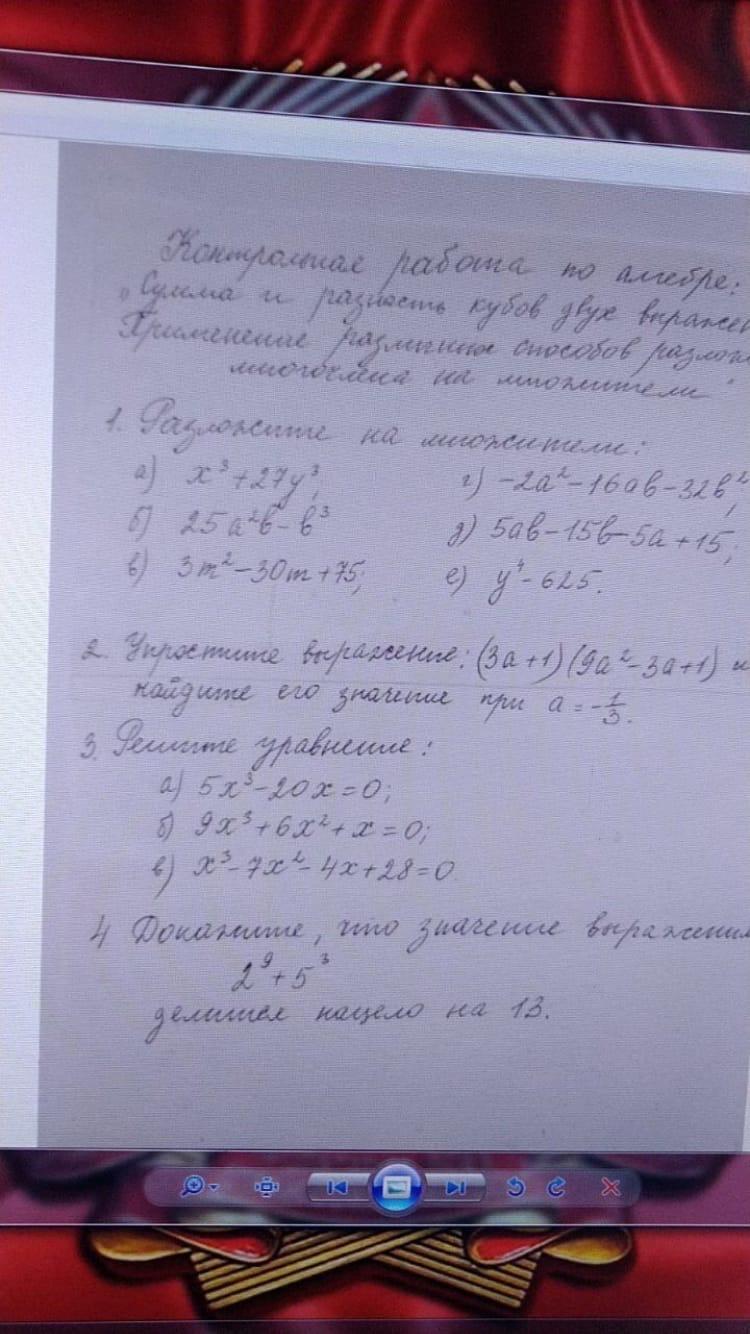 Контрольная работа по алгебре:
„Сумма и разность кубов двух выражен
Применение различных способов разлож
многочлена на множители"
1. Разложите на множители:
а) x³+27y³; г) -2a²-16ab-32b²;
б) 25a²b-b³ д) 5ab-15b-5a+15;
в) 3m²-30m+75; е) y⁴-625.
2. Упростите выражение: (3a+1)(9a²-3a+1) и
найдите его значение при a=-1/3.
3. Решите уравнение:
а) 5x³-20x=0;
б) 9x³+6x²+x=0;
в) x³-7x²-4x+28=0
4 Докажите, что значение выражения
2⁹+5³
делится нацело на 13.